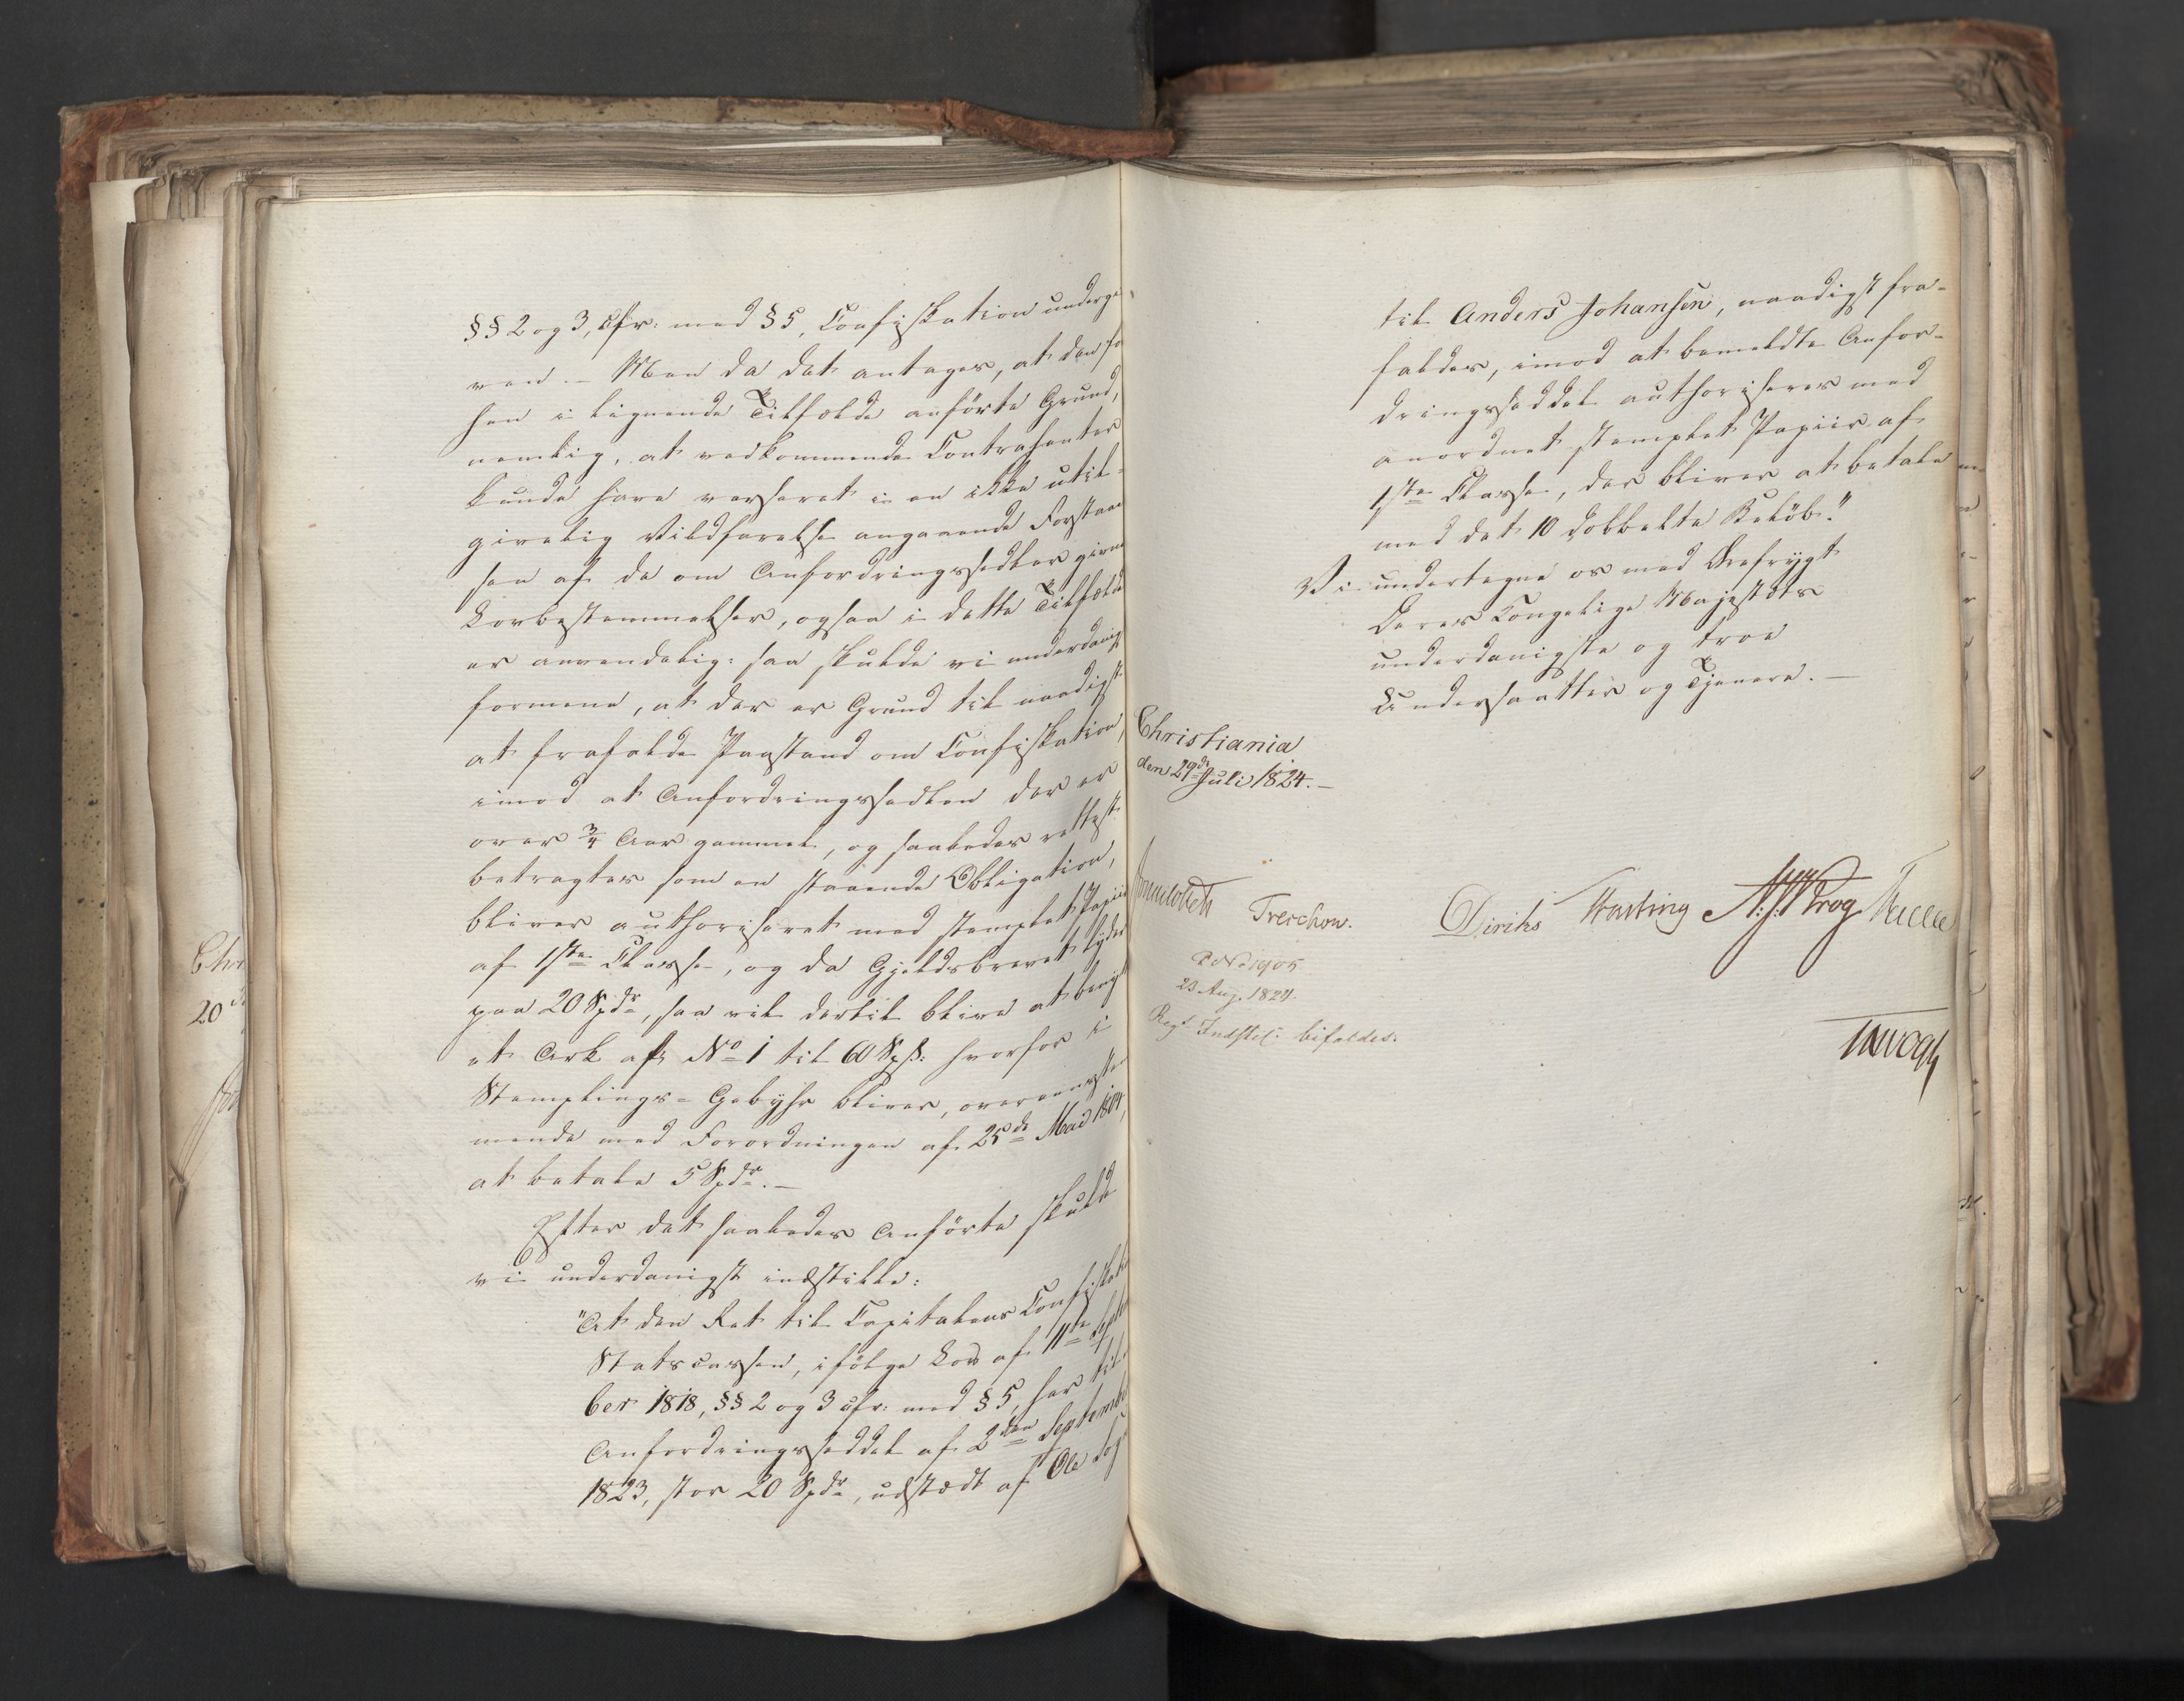 §§ 2 og 3, cfr: med § 5, Confiskation underge
ven. — Men da det antages, at den fo
hen i lignende Tilfælde anförte Grund,
nemlig, at vedkommende Contrahenter
kunde have verseret i en ikke util-
givelig Vildfarelse angaaende Forstaae
sen af de om Anfordringssedler givne
Lovbestemmelser, ogsaa i dette Tilfælde
er anvendelig: saa skulde vi underdanigst
formene, at der er Grund til naadigst
at frafalde Paastand om Confiskation,
imod at Anfordringssedlen der er
over 3/4 Aar gammel, og saaledes rettest
betragtes som en staaende Obligation,
bliver authoriseret med stemplet Papiir
af 1ste Classe, og da Gjeldsbrevet lyder
paa 20 Spdr, saa vil dertil blive at brug
et Ark af No 1 til 60 Spß: hvorfor i
Stemplings-Gebyhr bliver, overeensstem
mende med Forordningen af 25de Mai 1804,
at betale 5 Spdr. —
Efter det saaledes Anförte skulde
vi underdanigst indstille:
"At den Ret til Capitalens Confiskation
Statscassen, ifölge Lov af 11te Septem
ber 1818, §§ 2 og 3 cfr: med § 5, har til
Anfordringsseddel af 2den September
1823, stor 20 Spdr, udstædt af Ole
til Anders Johansen, naadigst fra-
faldes, imod at bemeldte Anfor-
dringsseddel authoriseres med
anordnet stemplet Papiir af
1ste Classe, der bliver at betale
med det 10 dobbelte Belöb."
Vi undertegne os med Ærefrygt
Deres Kongelige Majestæts
underdanigste og troe
Undersaatter og Tjenere. —
Christiania
den 29de Juli 1824. —
Sommerhielm Treschow. Diriks Motzfeldt
23 Aug. 1824.
Regs Indstil: bifaldes.
Chri
20de